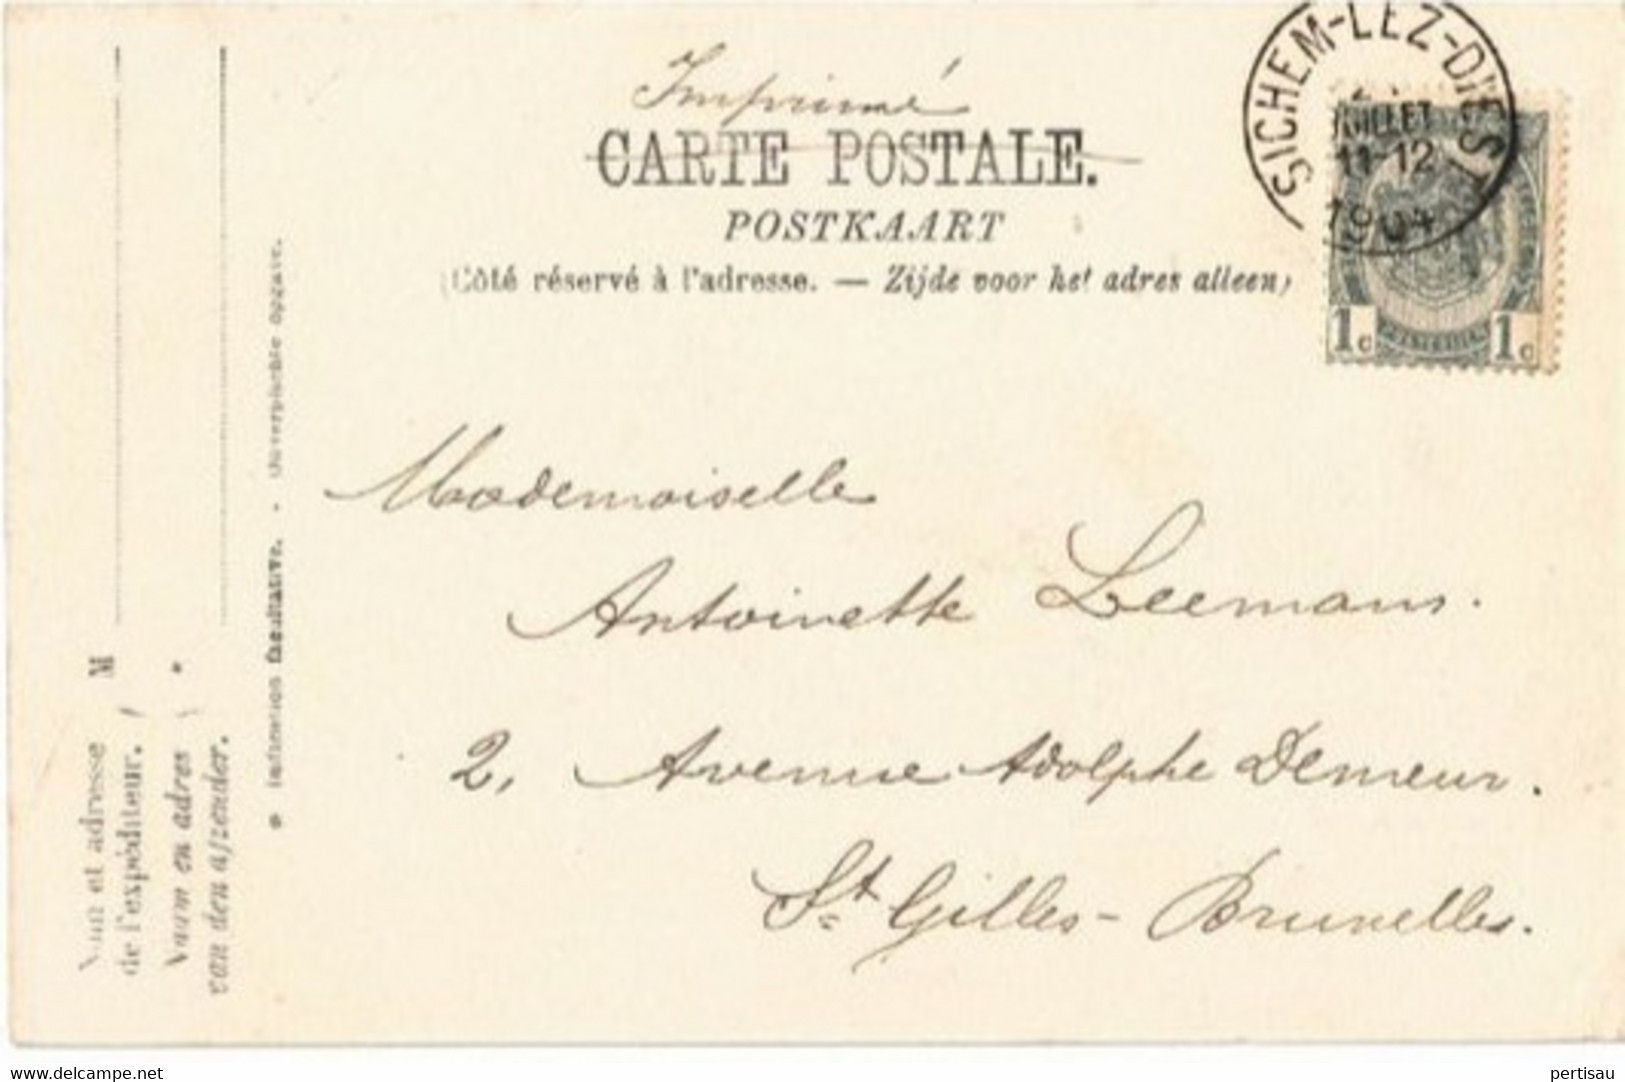 Imprimé
CARTE POSTALE.
POSTKAART
(Côté réservé à l'adresse. — Zijde voor het adres alleen)
SICHEM-LEZ-DIEST
JUILLET
11-12
1904
1c 1c
Mademoiselle
Antoinette Leemans.
2, Avenue Adolphe Demeur.
St Gilles - Bruxelles.
Nom et adresse M
de l'expéditeur.
Naam en adres
van den afzender.
Indication facultative. - Onverplichte opgave.
www.delcampe.net
pertisau